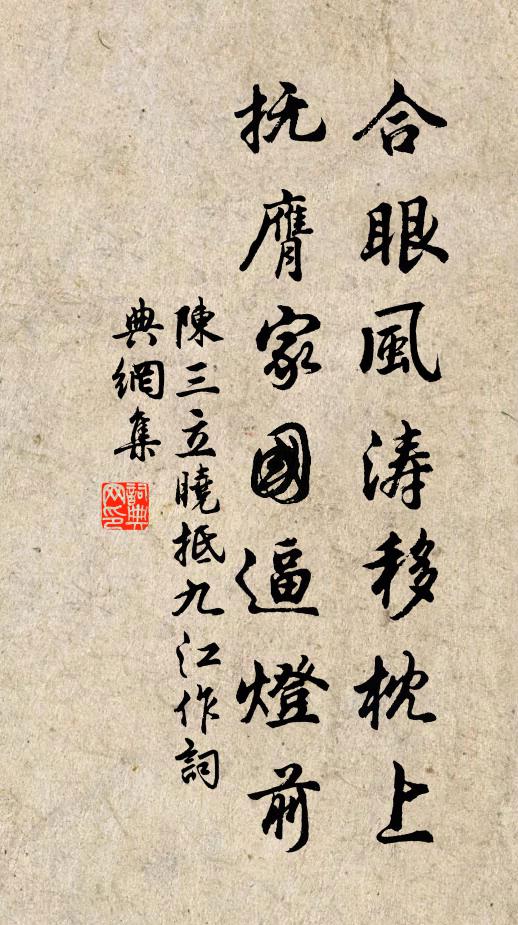 合眼風涛移枕上
抚膺家國逼燈前
陳三立曉抵九江作詞
典網集
詞典網印